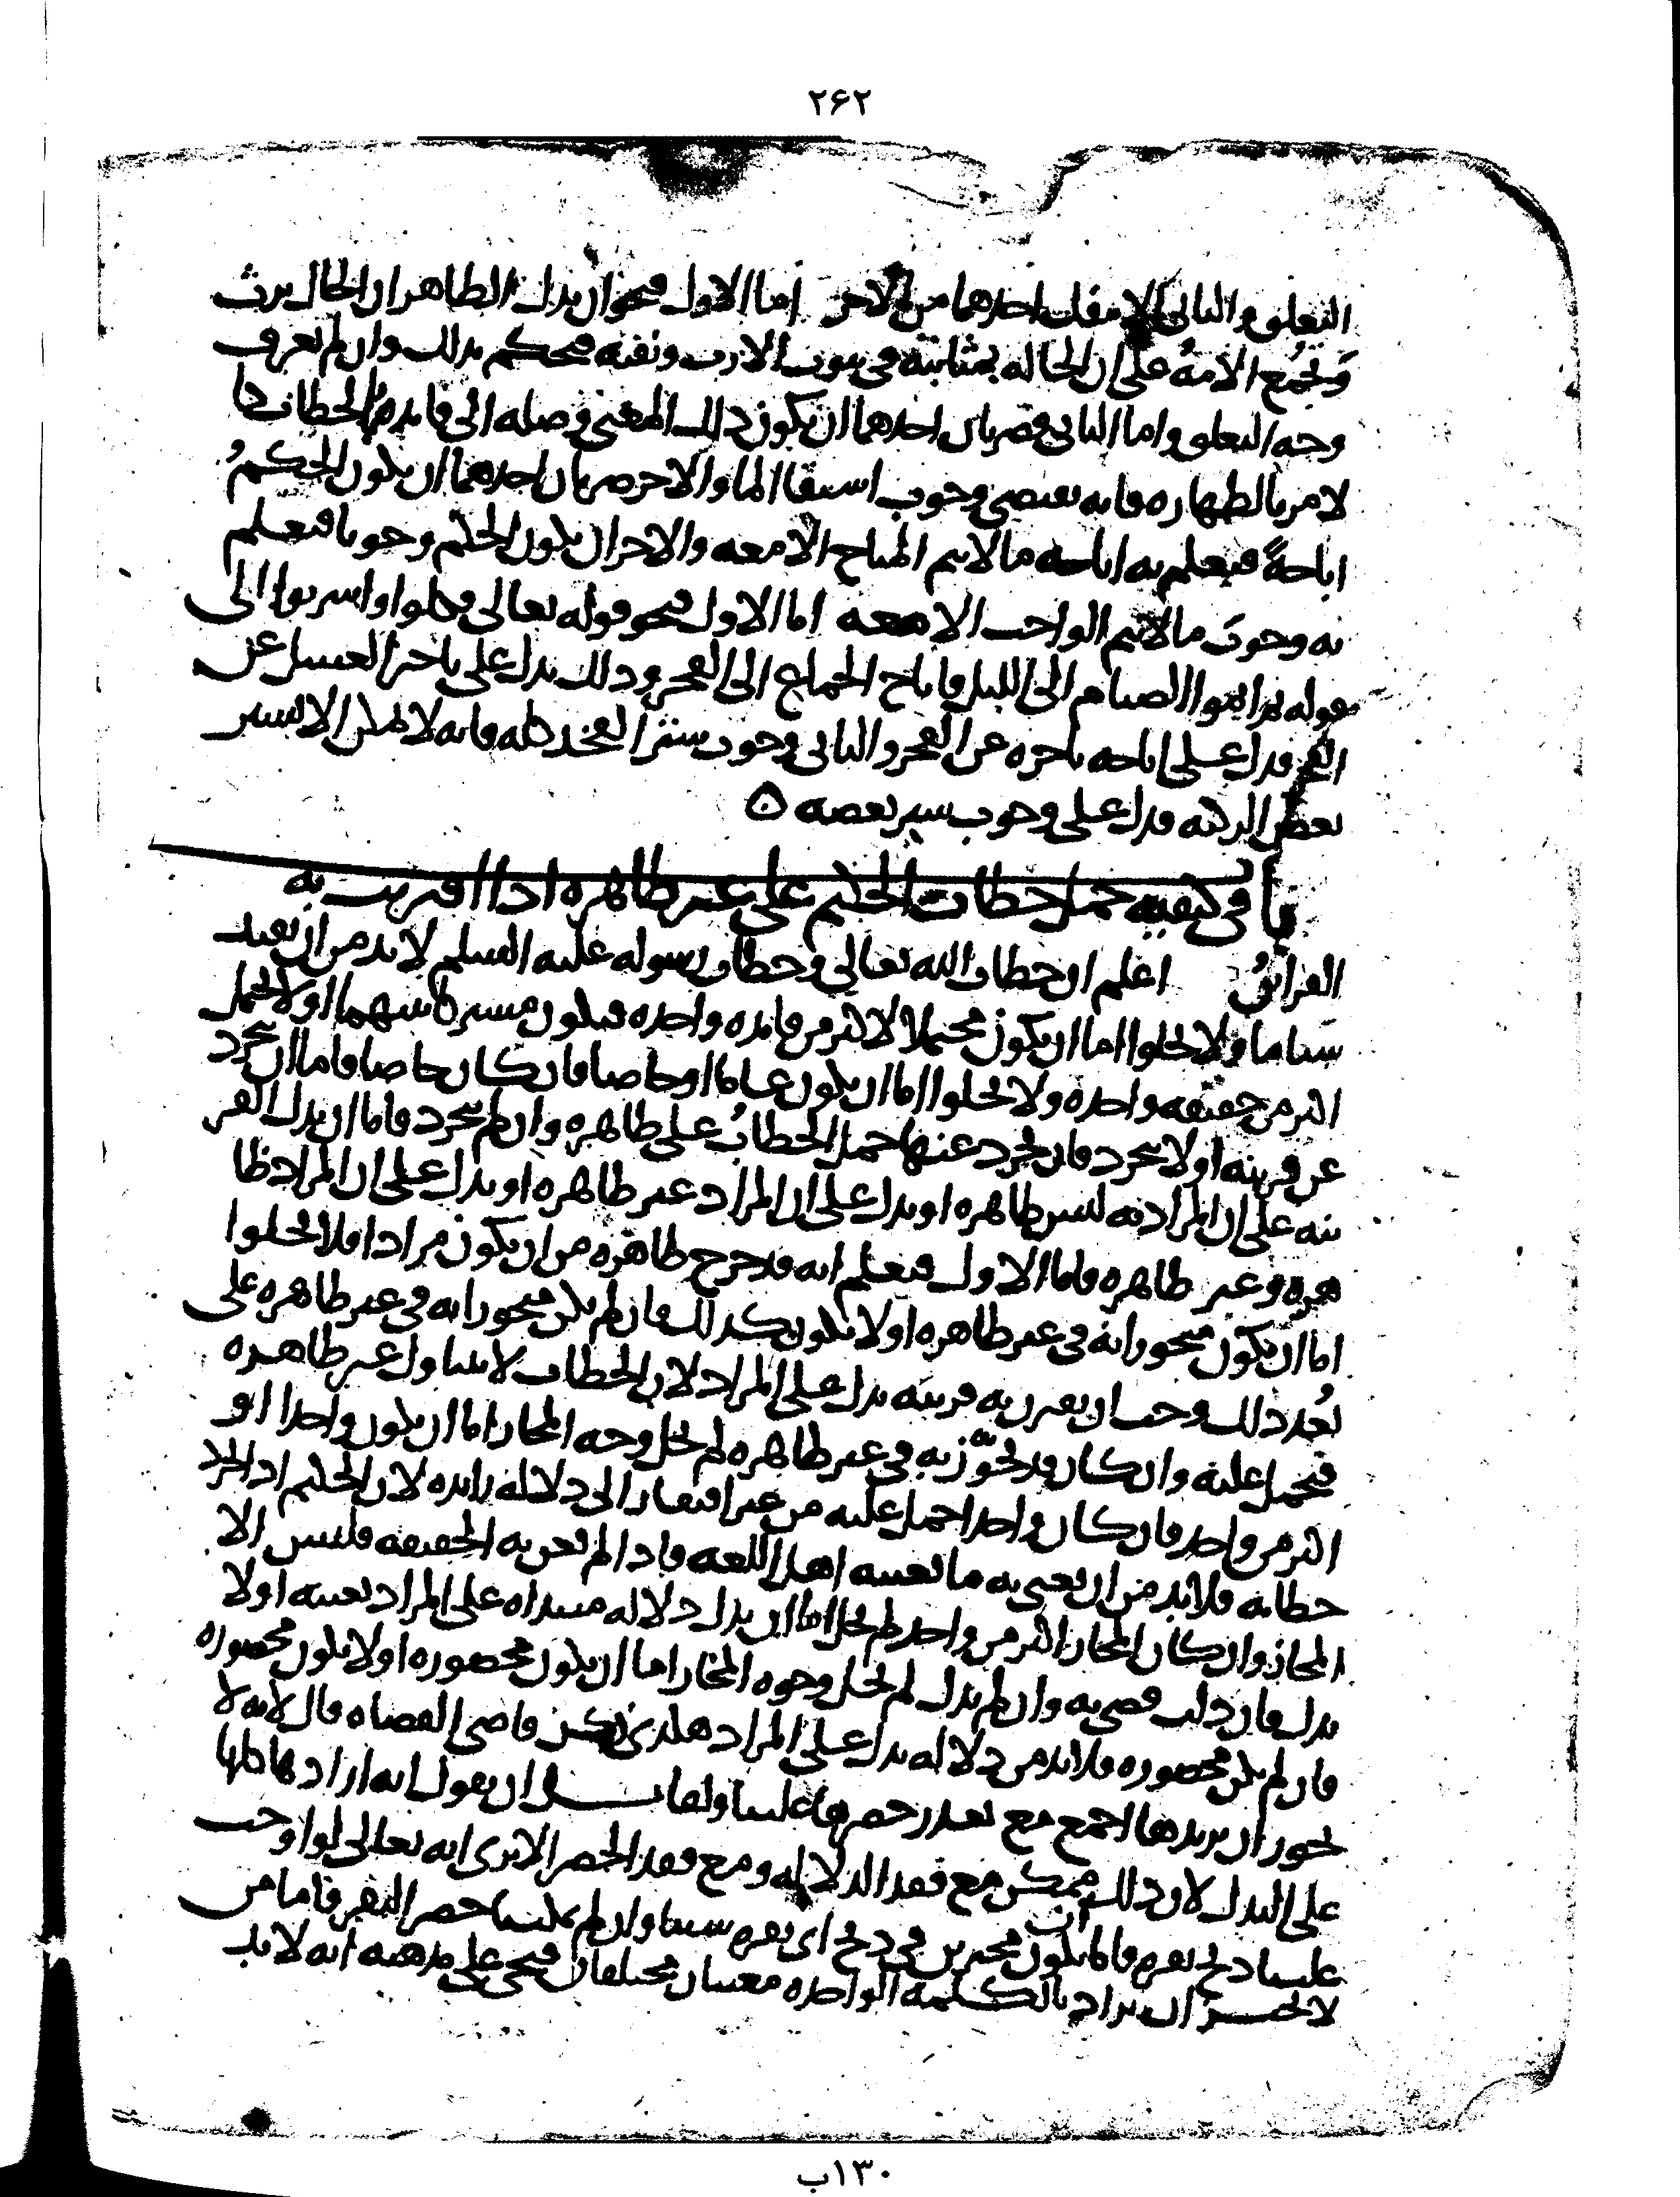 ٢۶٢
التعلق والثاني الا ينفك احدهما من الاخر اما الاول فنحو ان يدل الظاهر ان الخال يرث
وتجمع الامة على ان الخاله بمثابته في ثبوت الارث ونفيه فيحكم بذلك وان لم نعرف
وجه التعلق واما الثاني فضربان احدهما ان يكون ذلك المعنى وصله الى فائدة الخطاب كا
لامر بالطهاره فانه يقتضي وجوب استقا الما والاخر ضربان احدهما ان يكون الحكم
اباحةً فيعلم به اباحه ما لا يتم المباح الا معه والاخر ان يكون الحكم وجوبا فيعلم
به وجوب ما لا يتم الواجب الا معه اما الاول فنحو قوله تعالى وكلوا واشربوا الى
قوله ثم اتموا الصيام الى الليل فاباح الجماع الى الفجر وذلك يدل على تاخر الغسل عن
الفجر فدل على اباحه تاخره عن الفجر والثاني وجوب ستر الفخذ كله فانه لا يمكن الا بستر
بعض الركبه فدل على وجوب ستر بعضه ه
باب في كيفيه حمل خطاب الحكيم على غير ظاهره اذا اقترنت به
القرائن اعلم ان خطاب الله تعالى وخطاب رسوله عليه السلم لا بد من ان يفيد
شيئا ما ولا يخلوا اما ان يكون محتملا لاكثر من فائده واحده فيكون مشتركا بينهما او لا يحتمل
اكثر من حقيقه واحده ولا يخلوا اما ان يكون عاما او خاصا فان كان خاصا فاما ان تجرد
عن قرينه او لا يتجرد فان تجرد عنها حمل الخطاب على ظاهره وان لم يتجرد فاما ان يدل القر
ينه على ان المراد به ليس ظاهره او يدل على ان المراد غير ظاهره او يدل على ان المراد ظا
هره وغير ظاهره فاما الاول فيعلم انه قد خرج ظاهره من ان يكون مرادا فلا يخلوا
اما ان يكون متجوزا به في غير ظاهره او لا يكون كذلك فان لم يكن متجوزا به في غير ظاهره على
بعد ذلك وجب ان يقترن به قرينه يدل على المراد لان الخطاب لا يتناول غير ظاهره
فيحمل عليه وان كان قد تجوّز به في غير ظاهره لم يخل وجه المجاز اما ان يكون واحدا او
اكثر من واحد فان كان واحدا حمل عليه من غير افتقار الى دلاله زايده لان الحكيم اذا جرد
خطابه فلا بد من ان يعني به ما تعنيه اهل اللغه فاذا لم تعن به الحقيقه فليس الا
المجاز وان كان المجاز اكثر من واحد لم يخل اما ان يدل دلاله مبتداه على المراد بعينه او لا
يدل فان دلت قضي به وان لم يدل لم يخل وجوه المجاز اما ان يكون محصوره او لا يكون محصوره
فان لم يكن محصوره فلا بد من دلاله يدل على المراد هكذى ذكر قاضي القضاه قال لانه لا
يجوز ان يريدها اجمع مع تعذر حصرها علينا ولقائل ان يقول انه اراد كلها
على البدل لان ذلك ممكن مع فقد الدلاله ومع فقد الحصر الا ترى انه تعالى لو اوجب
علينا ذبح بقره فانا نكون مخيرين في ذبح اي بقره شئنا وان لم يمكننا حصر البقر فاما من
لا يجيز ان يراد بالكلمه الواحده معنيان مختلفان فيجي على مذهبه انه لا بد
١٣٠ب